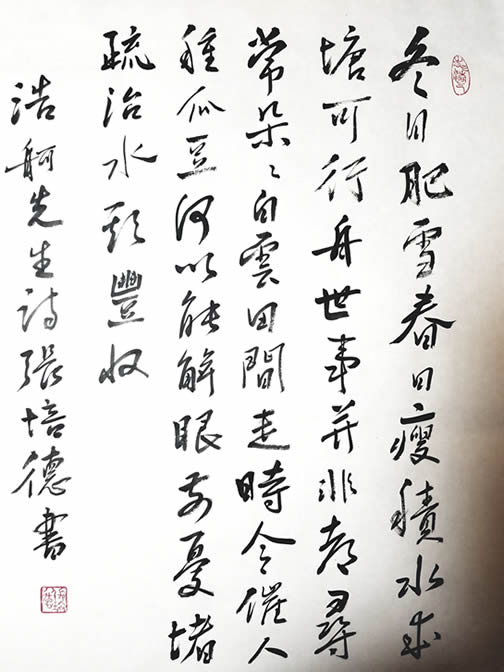 冬日肥雪春日瘦積水成
塘可行舟世事并非都尋
常朵〻白雲田間走時令催人
種瓜豆何以能解眼前憂堵
疏治水致豐收
浩舸先生詩張培德書